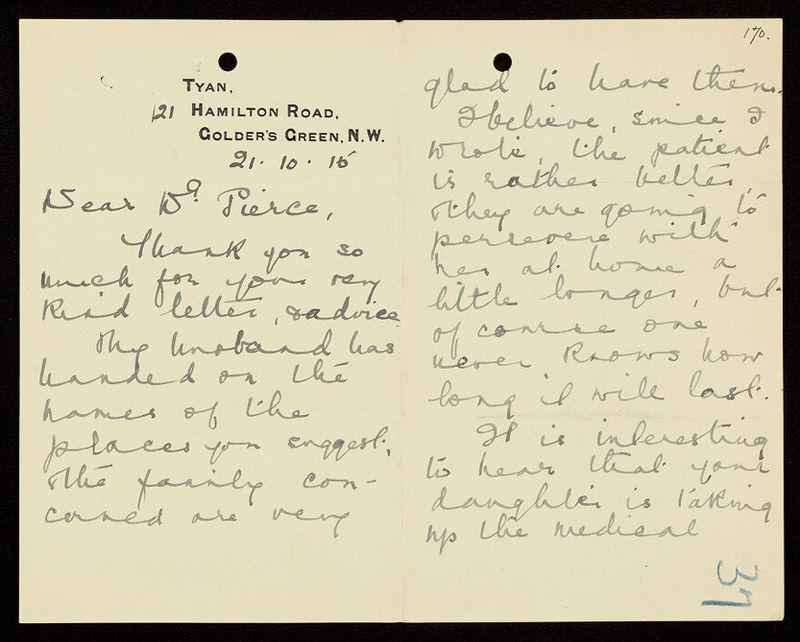 TYAN,
121 HAMILTON ROAD,
GOLDER'S GREEN, N.W.
21. 10. 15
Dear Dr. Pierce,
Thank you so
much for your very
kind letter, & advice.
My husband has
handed on the
names of the
places you suggest,
& the family con-
cerned are very
170.
glad to have them.
I believe, since I
wrote, the patient
is rather better,
& they are going to
persevere with
her at home a
little longer, but
of course one
never knows how
long it will last.
It is interesting
to hear that your
daughter is taking
up the medical
37